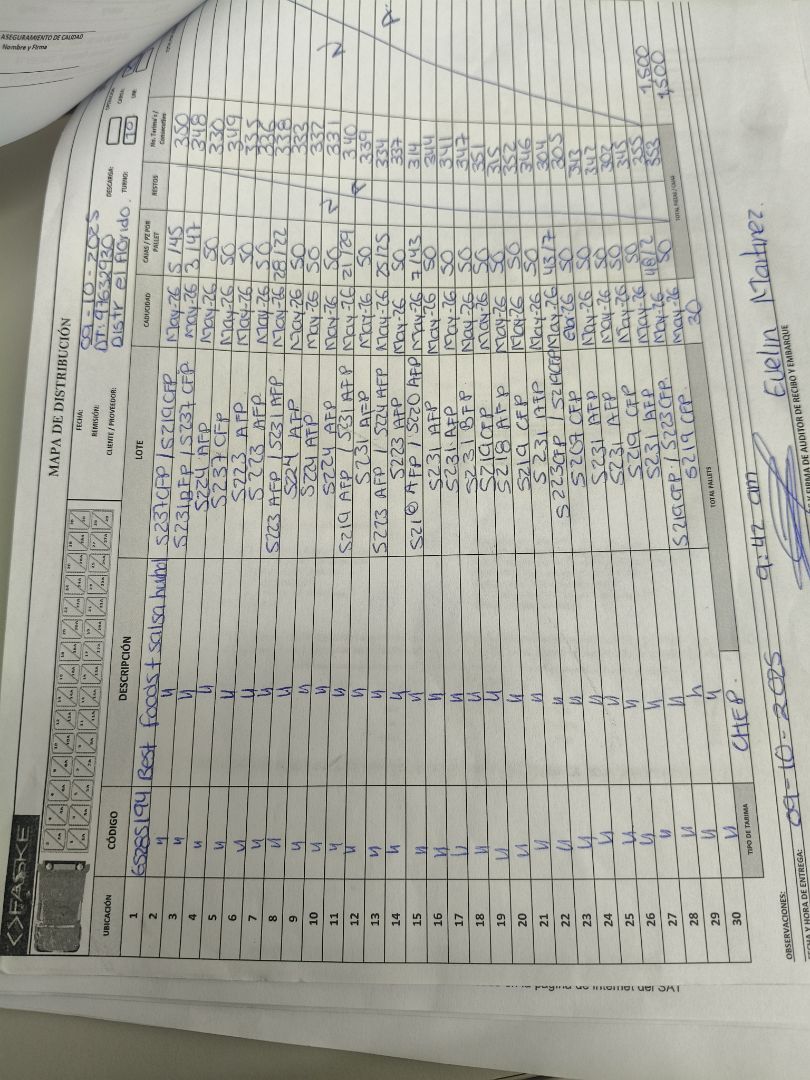 ASEGURAMIENTO DE CALIDAD
Nombre y Firma
FASKE
MAPA DE DISTRIBUCIÓN
FECHA: 09-10-2025
REMISIÓN: DT: 97632930
CLIENTE / PROVEEDOR: Distr el Florido.
DESCARGA:
CARGA:
TURNO: 1º
UBICACIÓN CÓDIGO DESCRIPCIÓN LOTE CADUCIDAD CAJAS / PZ POR PALLET RESTOS No. Tarima's / Consecutivo
1 65285194 Best foods + salsa S237CFP / S219CFP May-26 5/45 350
2 " " S231BFP / S237 CFP May-26 3/47 348
3 " " S224 AFP May-26 50 330
4 " " S237 CFP May-26 50 349
5 " " S223 AFP May-26 50 335
6 " " S223 AFP May-26 50 336
7 " " S223 AFP / S231 AFP May-26 28/22 338
8 " " S224 AFP May-26 50 333
9 " " S224 AFP May-26 50 332
10 " " S224 AFP May-26 50 331
11 " " S219 AFP / S231 AFP May-26 21/29 340
12 " " S231 AFP May-26 50 339
13 " " S223 AFP / S224 AFP May-26 25/25 334
14 " " S223 AFP May-26 50 337
15 " " S218 AFP / S220 AFP May-26 7/43 314
16 " " S231 AFP May-26 50 344
17 " " S231 AFP May-26 50 341
18 " " S231 BFP May-26 50 347
19 " " S219CFP May-26 50 351
20 " " S218 AFP May-26 50 315
21 " " S219 CFP May-26 50 352
22 " " S231 AFP May-26 50 346
23 " " S223CFP / S219CFP May-26 43/7 304
24 " " S207 CFP 50 305
25 " " S231 AFP May-26 50 343
26 " " S231 AFP May-26 50 342
27 " " S219 CFP May-26 50 302
28 " " S231 AFP May-26 50 345
29 " " S219CFP / S223CFP May-26 48/2 355
30 " " S219 CFP May-26 50 353
N A
N A
TIPO DE TARIMA CHEP. TOTAL PALLETS 30 TOTAL PIEZAS / CAJAS 1,500
1,500
OBSERVACIONES:
FECHA Y HORA DE ENTREGA: 09-10-2025 9:42 am Evelin Martinez.
FIRMA DE AUDITOR DE RECIBO Y EMBARQUE
en la página de Internet del SAT